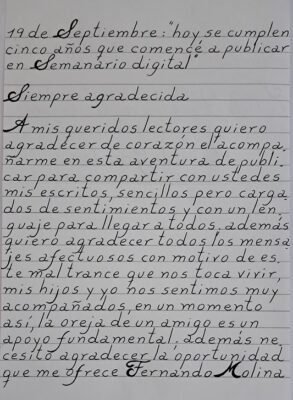 19 de Septiembre: "hoy se cumplen
cinco años que comencé a publicar
en Semanario digital"
Siempre agradecida
A mis queridos lectores quiero
agradecer de corazón el acompa-
ñarme en esta aventura de publi-
car para compartir con ustedes
mis escritos, sencillos pero carga-
dos de sentimientos y con un len-
guaje para llegar a todos, además
quiero agradecer todos los mensa-
jes afectuosos con motivo de es-
te mal trance que nos toca vivir,
mis hijos y yo nos sentimos muy
acompañados, en un momento
así, la oreja de un amigo es un
apoyo fundamental, además ne-
cesito agradecer la oportunidad
que me ofrece Fernando Molina